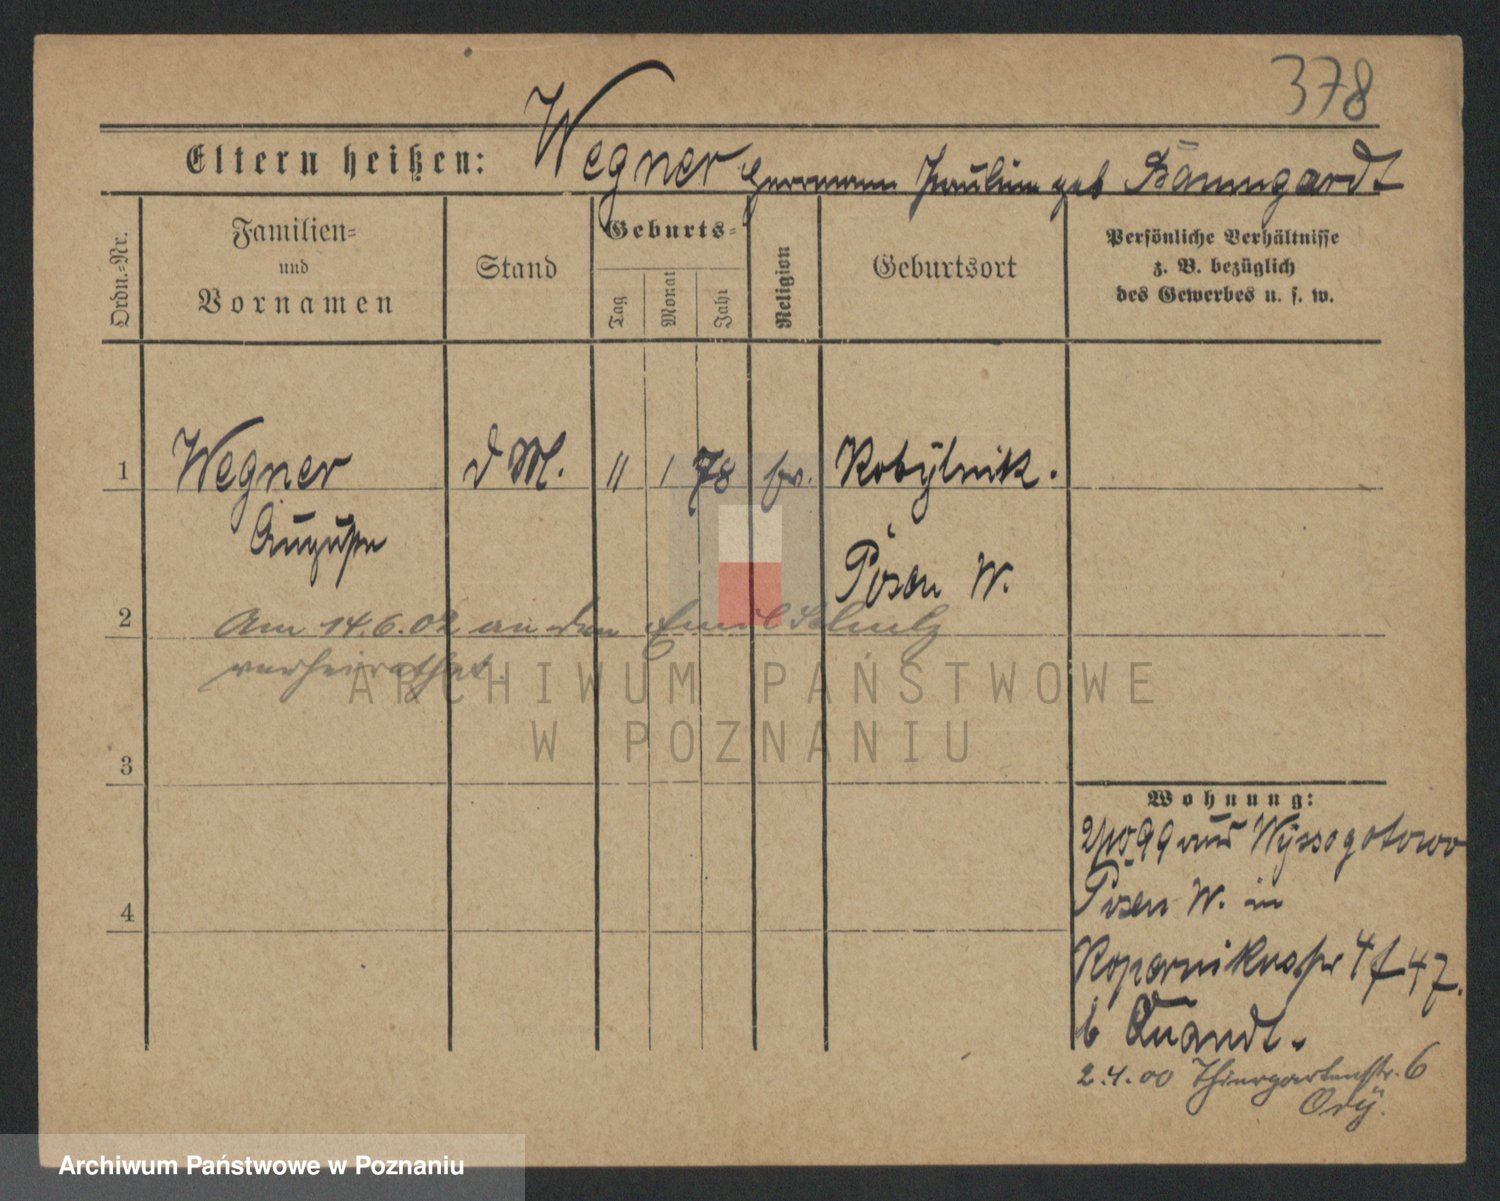 378
Eltern heißen: Wegner Herrmann Pauline geb Baumgardt
Ordn.-Nr.
Familien-
und
Vornamen
Stand
Geburts-
Tag
Monat
Jahr
Religion
Geburtsort
Persönliche Verhältnisse
z. B. bezüglich
des Gewerbes u. s. w.
1 Wegner d M. 11 1 78 ev. Kobylnik.
Auguste
Posen W.
2
Am 14.6.02 an den Emil Schulz
verheirathet.
3
4
Wohnung:
99 aus Wyssogotowo
Posen W. in
Kopernikusstr 4
b Quandt.
2.4.00 Thiergartenstr. 6
ARCHIWUM PAŃSTWOWE
W POZNANIU
Archiwum Państwowe w Poznaniu